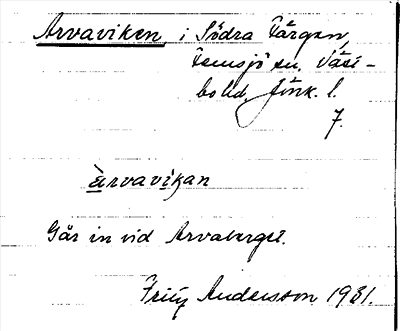 Arvaviken, i Södra Färgen,
Femsjö sn. Väst-
bo hd. Jönk. l.
7.
àrvavikan
Går in vid Arvaberget.
Fritz Andersson 1931.